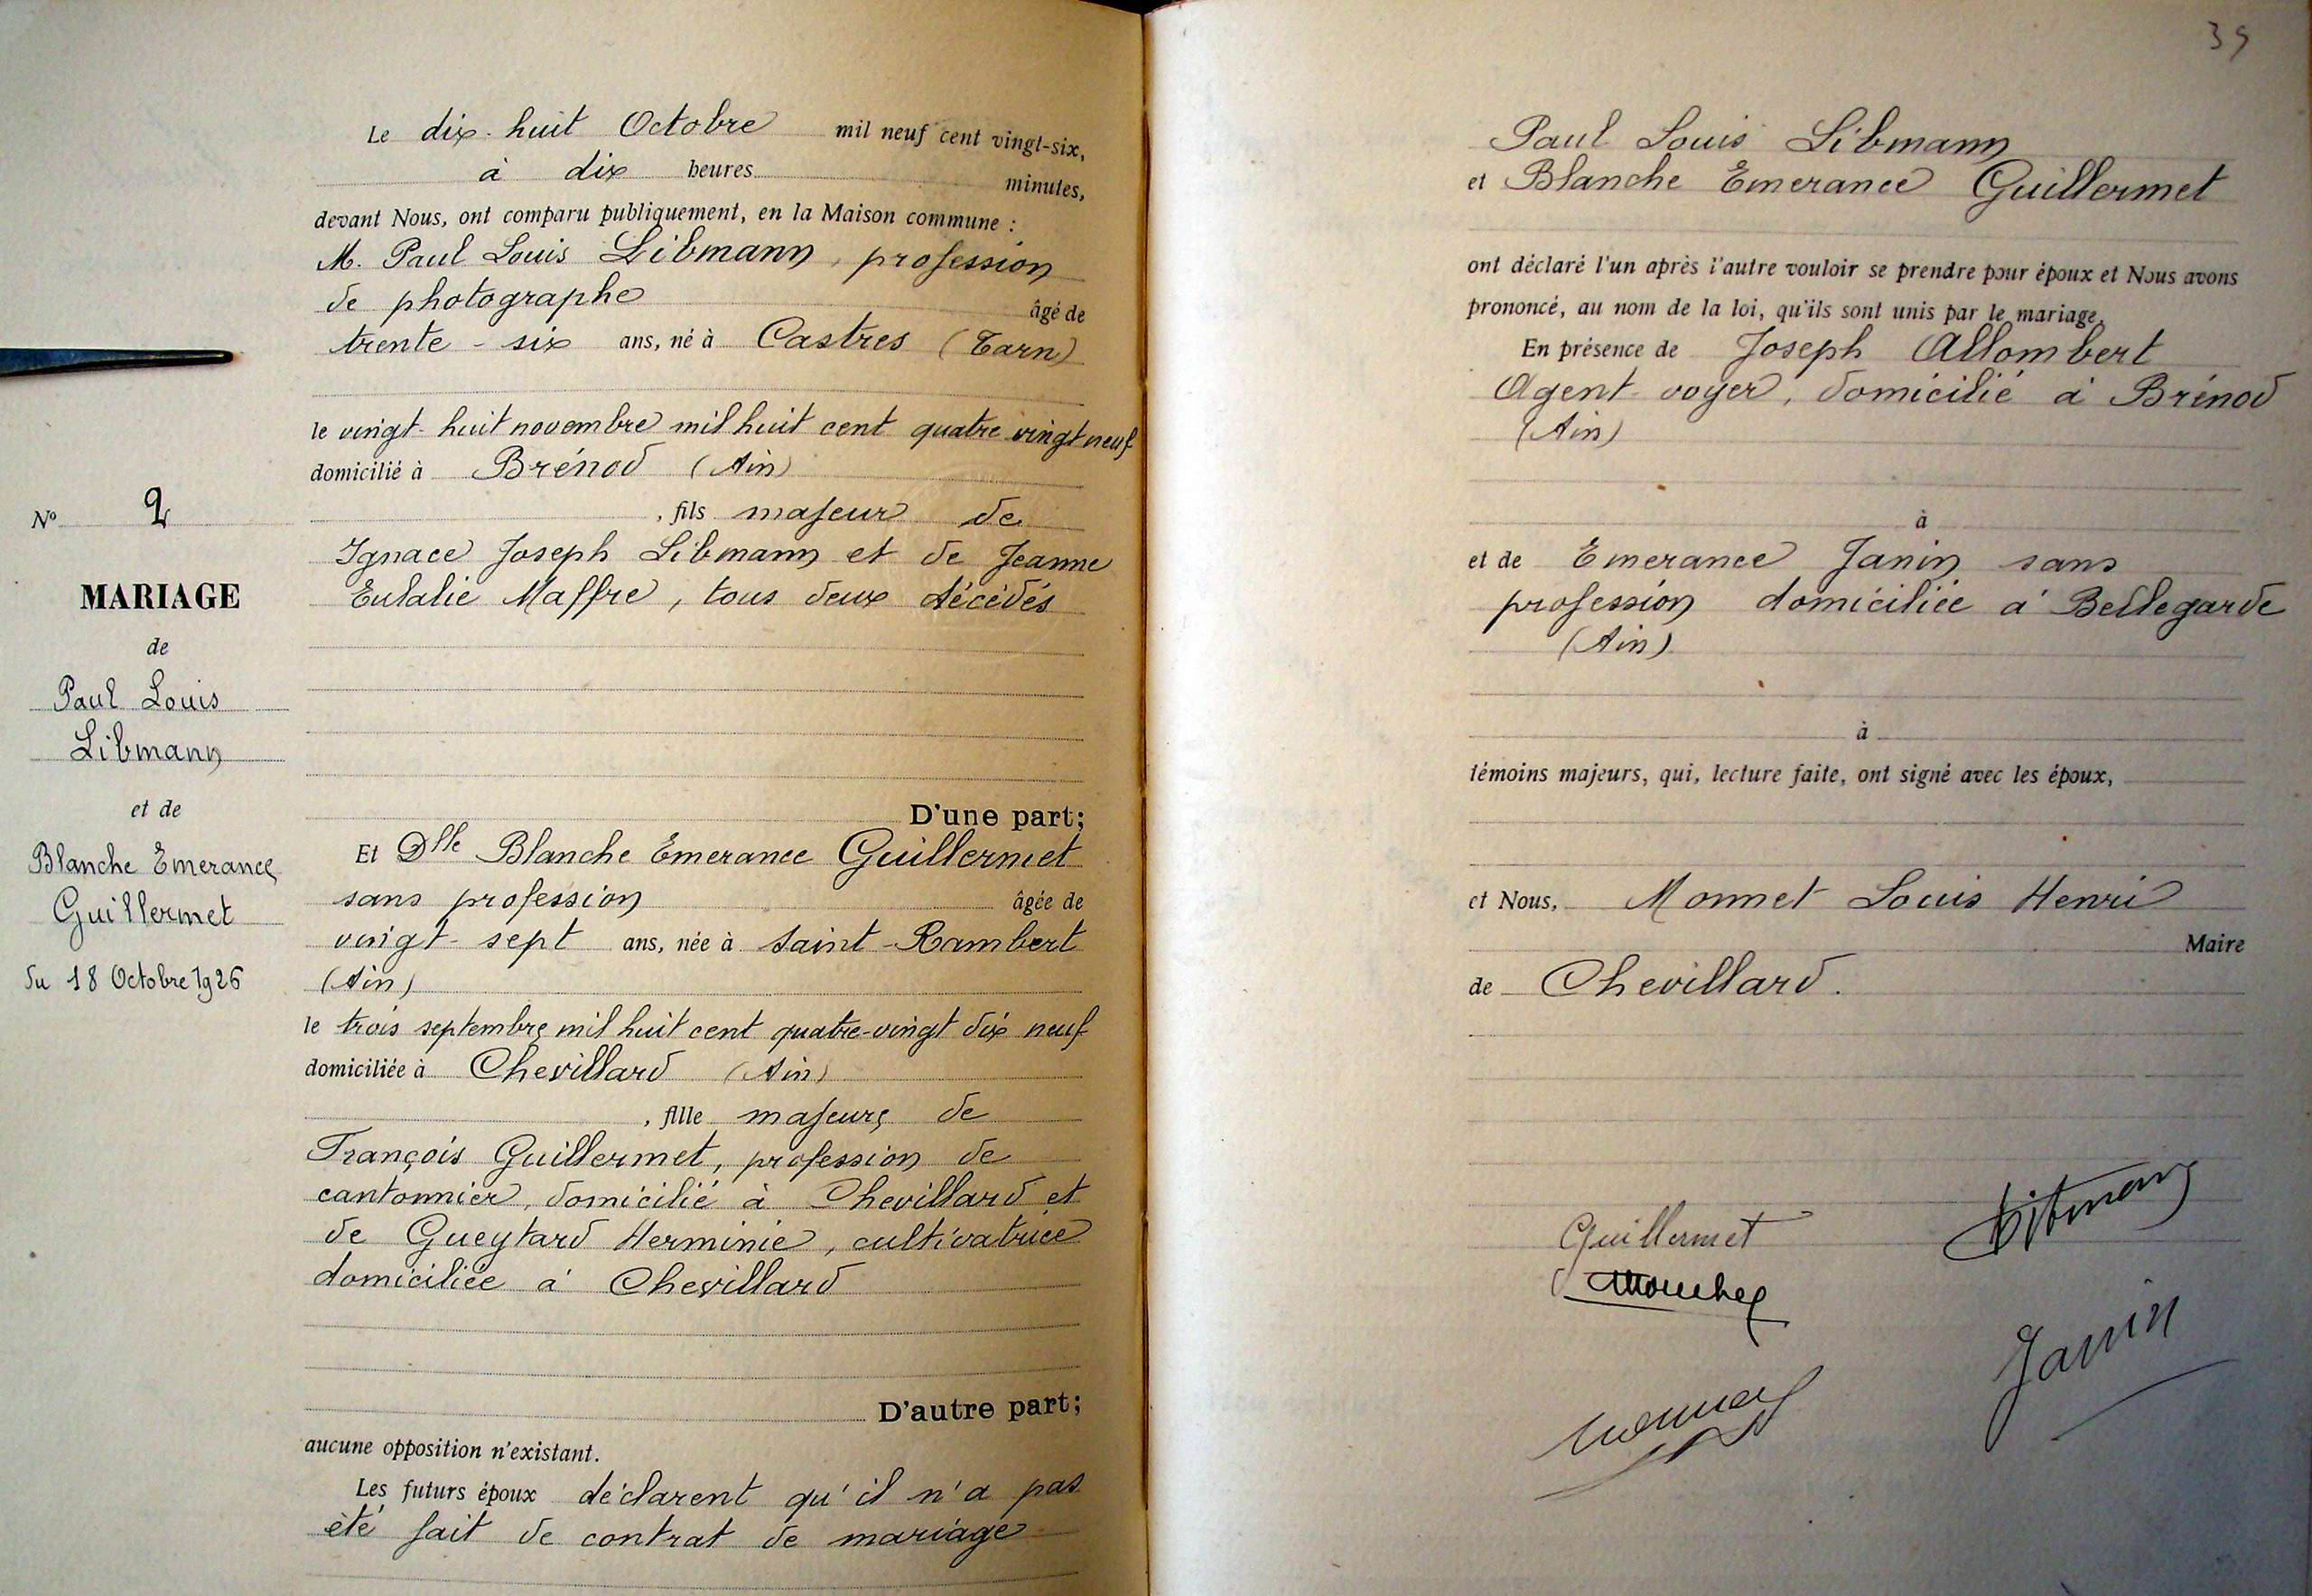 Le dix-huit Octobre mil neuf cent vingt-six,
à dix heures minutes,
devant Nous, ont comparu publiquement, en la Maison commune :
M. Paul Louis Libmann, profession
de photographe âgé de
trente-six ans, né à Castres (Tarn)
le vingt-huit novembre mil huit cent quatre vingt neuf
domicilié à Brénod (Ain)
, fils majeur de
Ignace Joseph Libmann et de Jeanne
Eulalie Maffre, tous deux décédés
D'une part;
Et Dlle Blanche Emerance Guillermet
sans profession âgée de
vingt-sept ans, née à Saint-Rambert
(Ain)
le trois septembre mil huit cent quatre-vingt dix neuf
domiciliée à Chevillard (Ain)
, fille majeure de
François Guillermet, profession de
cantonnier, domicilié à Chevillard et
de Gueytard Herminie, cultivatrice
domiciliée à Chevillard
D'autre part;
aucune opposition n'existant.
Les futurs époux déclarent qu'il n'a pas
été fait de contrat de mariage
No 2
MARIAGE
de
Paul Louis
Libmann
et de
Blanche Emerance
Guillermet
du 18 Octobre 1926
39
Paul Louis Libmann
et Blanche Emerance Guillermet
ont déclaré l'un après l'autre vouloir se prendre pour époux et Nous avons
prononcé, au nom de la loi, qu'ils sont unis par le mariage.
En présence de Joseph Allombert
Agent-voyer, domicilié à Brénod
(Ain)
à
et de Emerance Janin sans
profession domiciliée à Bellegarde
(Ain)
à
témoins majeurs, qui, lecture faite, ont signé avec les époux,
et Nous, Monnet Louis Henri
Maire
de Chevillard.
Guillermet
Libmann
Janin